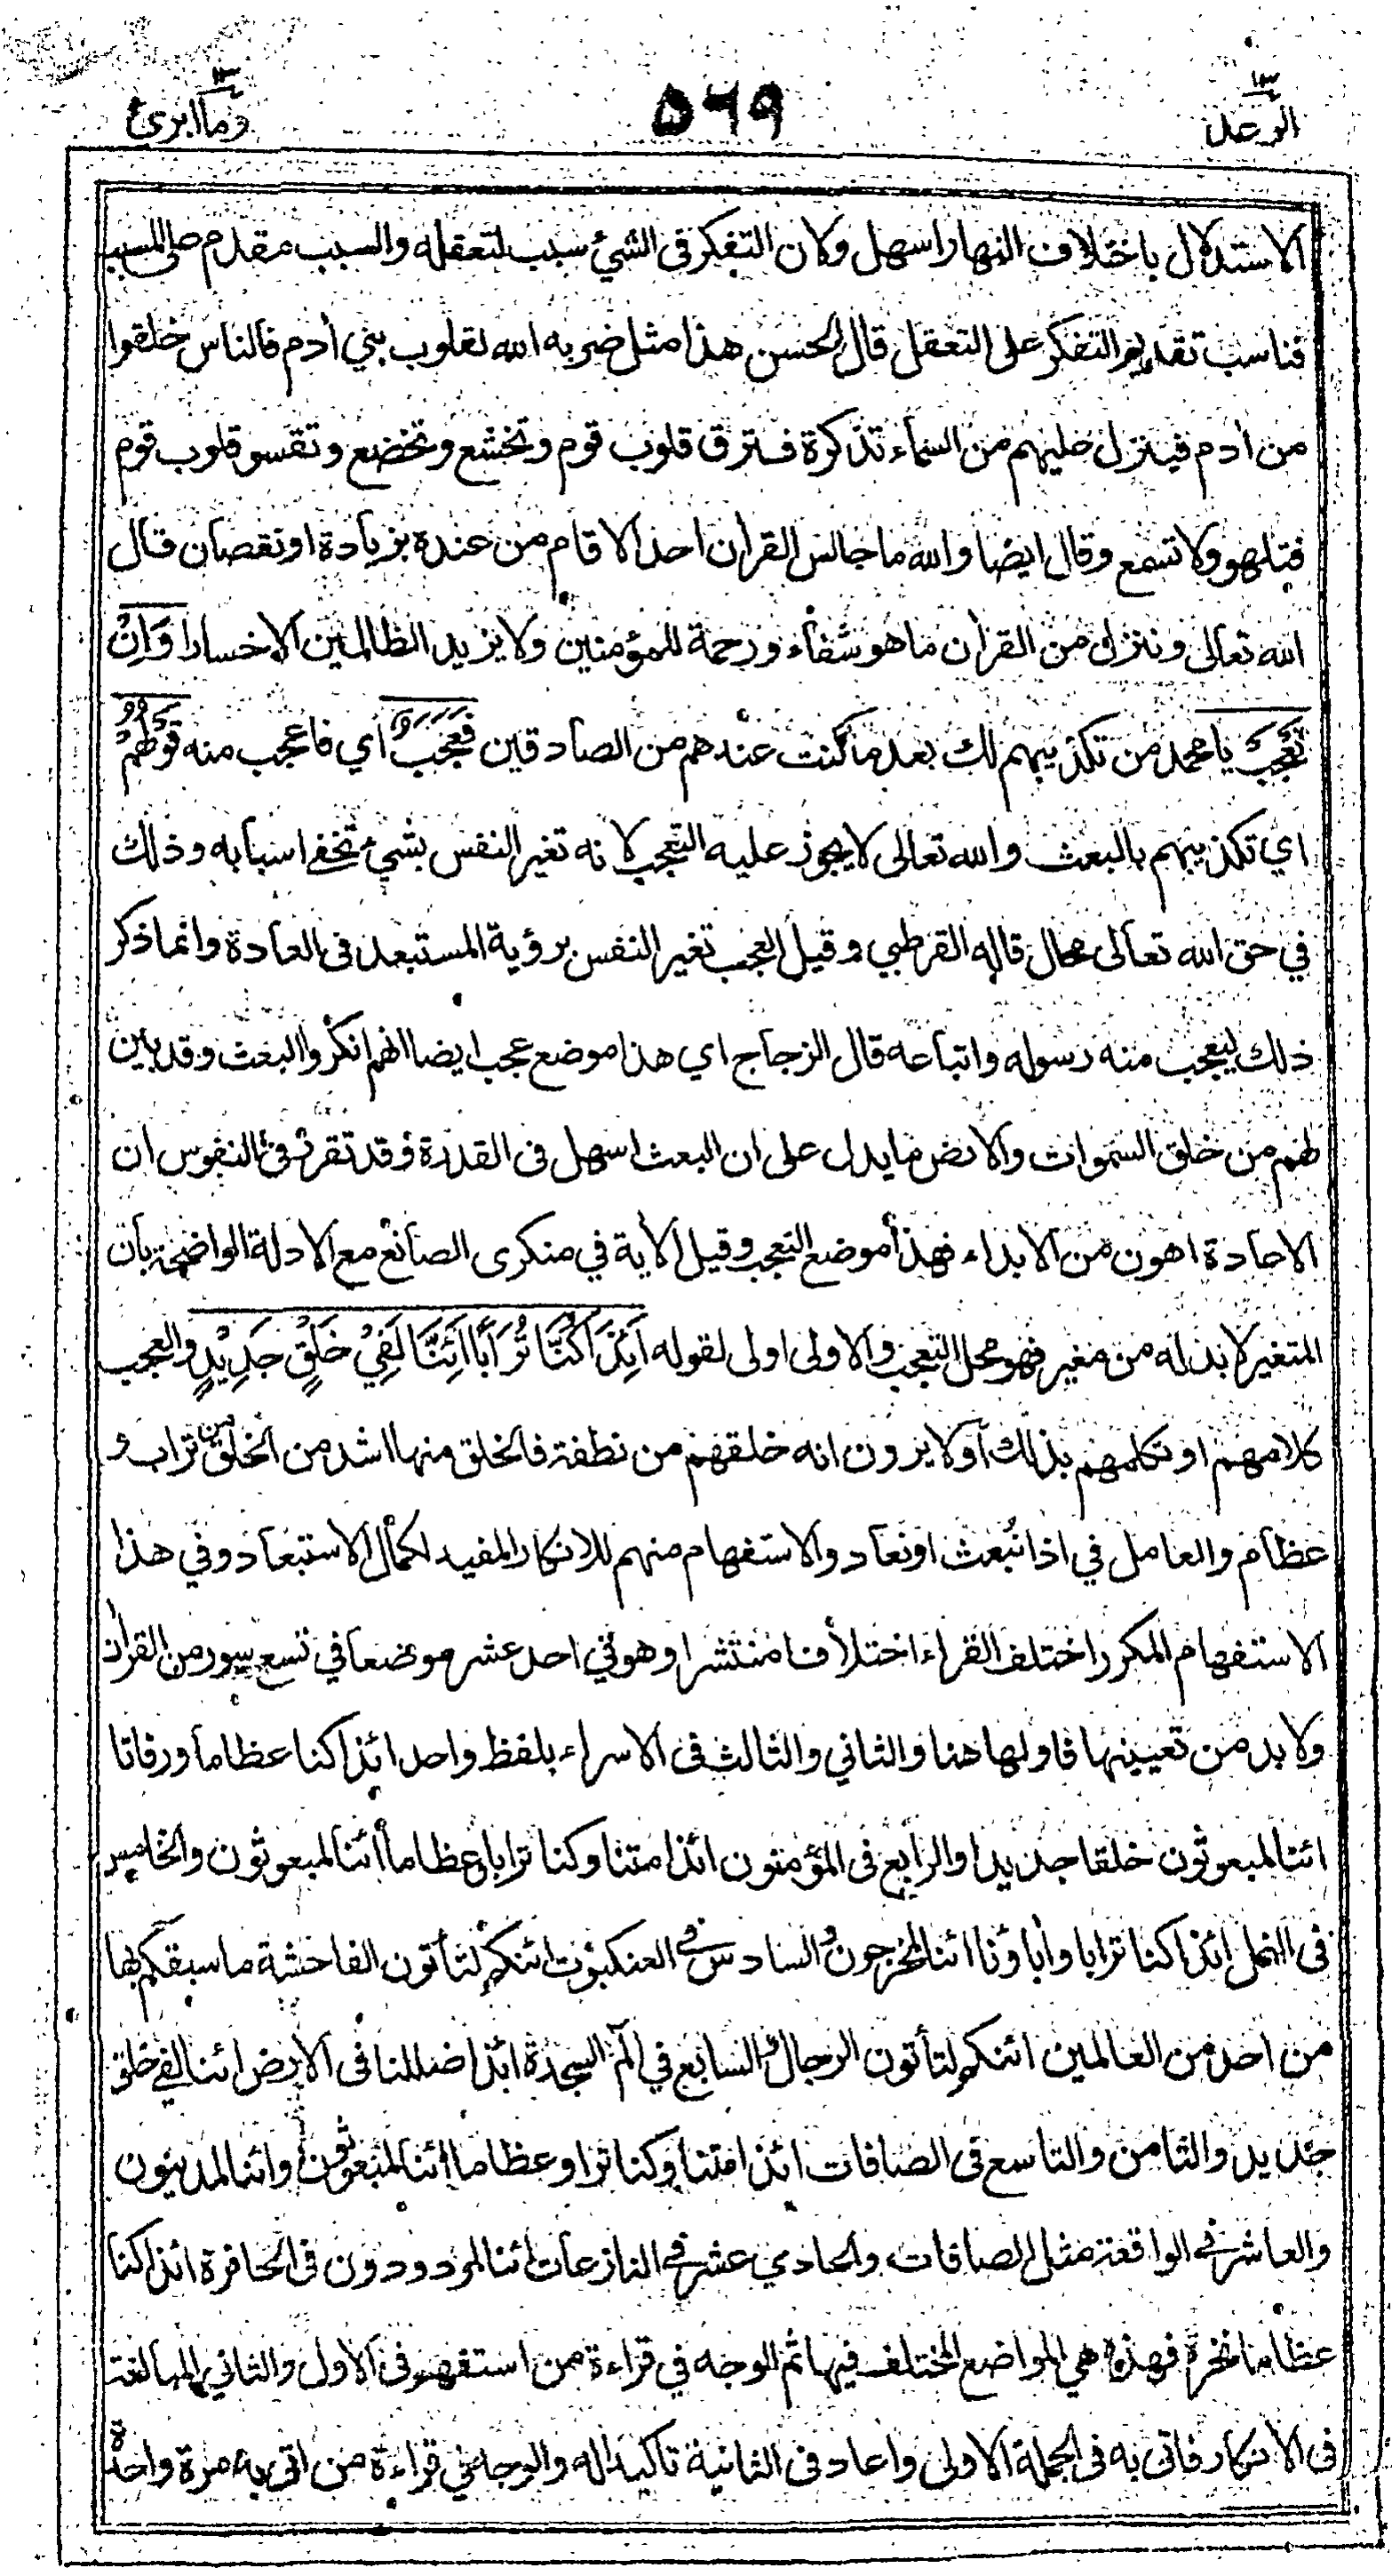 الرعد ١٣
٥٦٩
وما ابرئ ١٣
الاستدلال باختلاف النهار اسهل ولان التفكر في الشئ سبب لتعقله والسبب مقدم على المسبب
فناسب تقديم التفكر على التعقل قال الحسن هذا مثل ضربه الله لقلوب بني أدم فالناس خلقوا
من أدم فينزل عليهم من السماء تذكرة فترق قلوب قوم وتخشع وتخضع وتقسو قلوب قوم
فتلهو ولا تسمع وقال ايضا والله ما جالس القران احد الا قام من عنده بزيادة او نقصان قال
الله تعالى وننزل من القرأن ما هو شفاء ورحمة للمؤمنين ولا يزيد الظالمين الا خسارا وَاِنْ
تَعْجَبْ يا محمد من تكذيبهم لك بعد ما كنت عندهم من الصادقين فَعَجَبٌ أي فاعجب منه قَوْلُهُمْ
اي تكذيبهم بالبعث والله تعالى لا يجوز عليه التعجب لانه تغير النفس بشئ تخفى اسبابه وذلك
في حق الله تعالى محال قاله القرطبي وقيل العجب تغير النفس برؤية المستبعد في العادة وانما ذكر
ذلك ليعجب منه رسوله واتباعه قال الزجاج اي هذا موضع عجب ايضا انهم انكروا البعث وقد بين
لهم من خلق السموات والارض ما يدل على ان البعث اسهل في القدرة وقد تقرر في النفوس ان
الاعادة اهون من الابداء فهذا موضع التعجب وقيل الأية في منكري الصانع مع الادلة الواضحة بان
المتغير لا بد له من مغير فهو محل التعجب والاولى اولى لقوله اَئِذَا كُنَّا تُرَابًا اَئِنَّا لَفِيْ خَلْقٍ جَدِيْدٍ والعجب
كلامهم او تكلمهم بذلك أولا يرون انه خلقهم من نطفة فالخلق منها اشد من الخلق من تراب و
عظام والعامل في اذا نُبعث او نعاد والاستفهام منهم للانكار المفيد لكمال الاستبعاد وفي هذا
الاستفهام المكرر اختلف القراء اختلافا منتشرا وهو في احد عشر موضعا في تسع سور من القرأن
ولا بد من تعيينها فاولها هنا والثاني والثالث في الاسراء بلفظ واحد ائذا كنا عظاما ورفاتا
ائنا لمبعوثون خلقا جديدا والرابع في المؤمنون ائذا متنا وكنا ترابا وعظاما أئنا لمبعوثون والخامس
في النمل ائذا كنا ترابا وأباؤنا ائنا لمخرجون والسادس في العنكبوت ائنكم لتأتون الفاحشة ما سبقكم بها
من احد من العالمين ائنكم لتأتون الرجال والسابع في الٓمٓ السجدة ائذا ضللنا في الارض ائنا لفي خلق
جديد والثامن والتاسع في الصافات ائذا متنا وكنا ترابا وعظاما أئنا لمبعوثون وائنا لمدينون
والعاشر في الواقعة مثل الصافات والحادي عشر في النازعات ائنا لمردودون في الحافرة ائذا كنا
عظاما نخرة فهذه هي المواضع المختلف فيها ثم الوجه في قراءة من استفهم في الاول والثاني المبالغة
في الانكار فاتى به في الجملة الاولى واعاد في الثانية تاكيدا له والوجه في قراءة من اتى به مرة واحدة